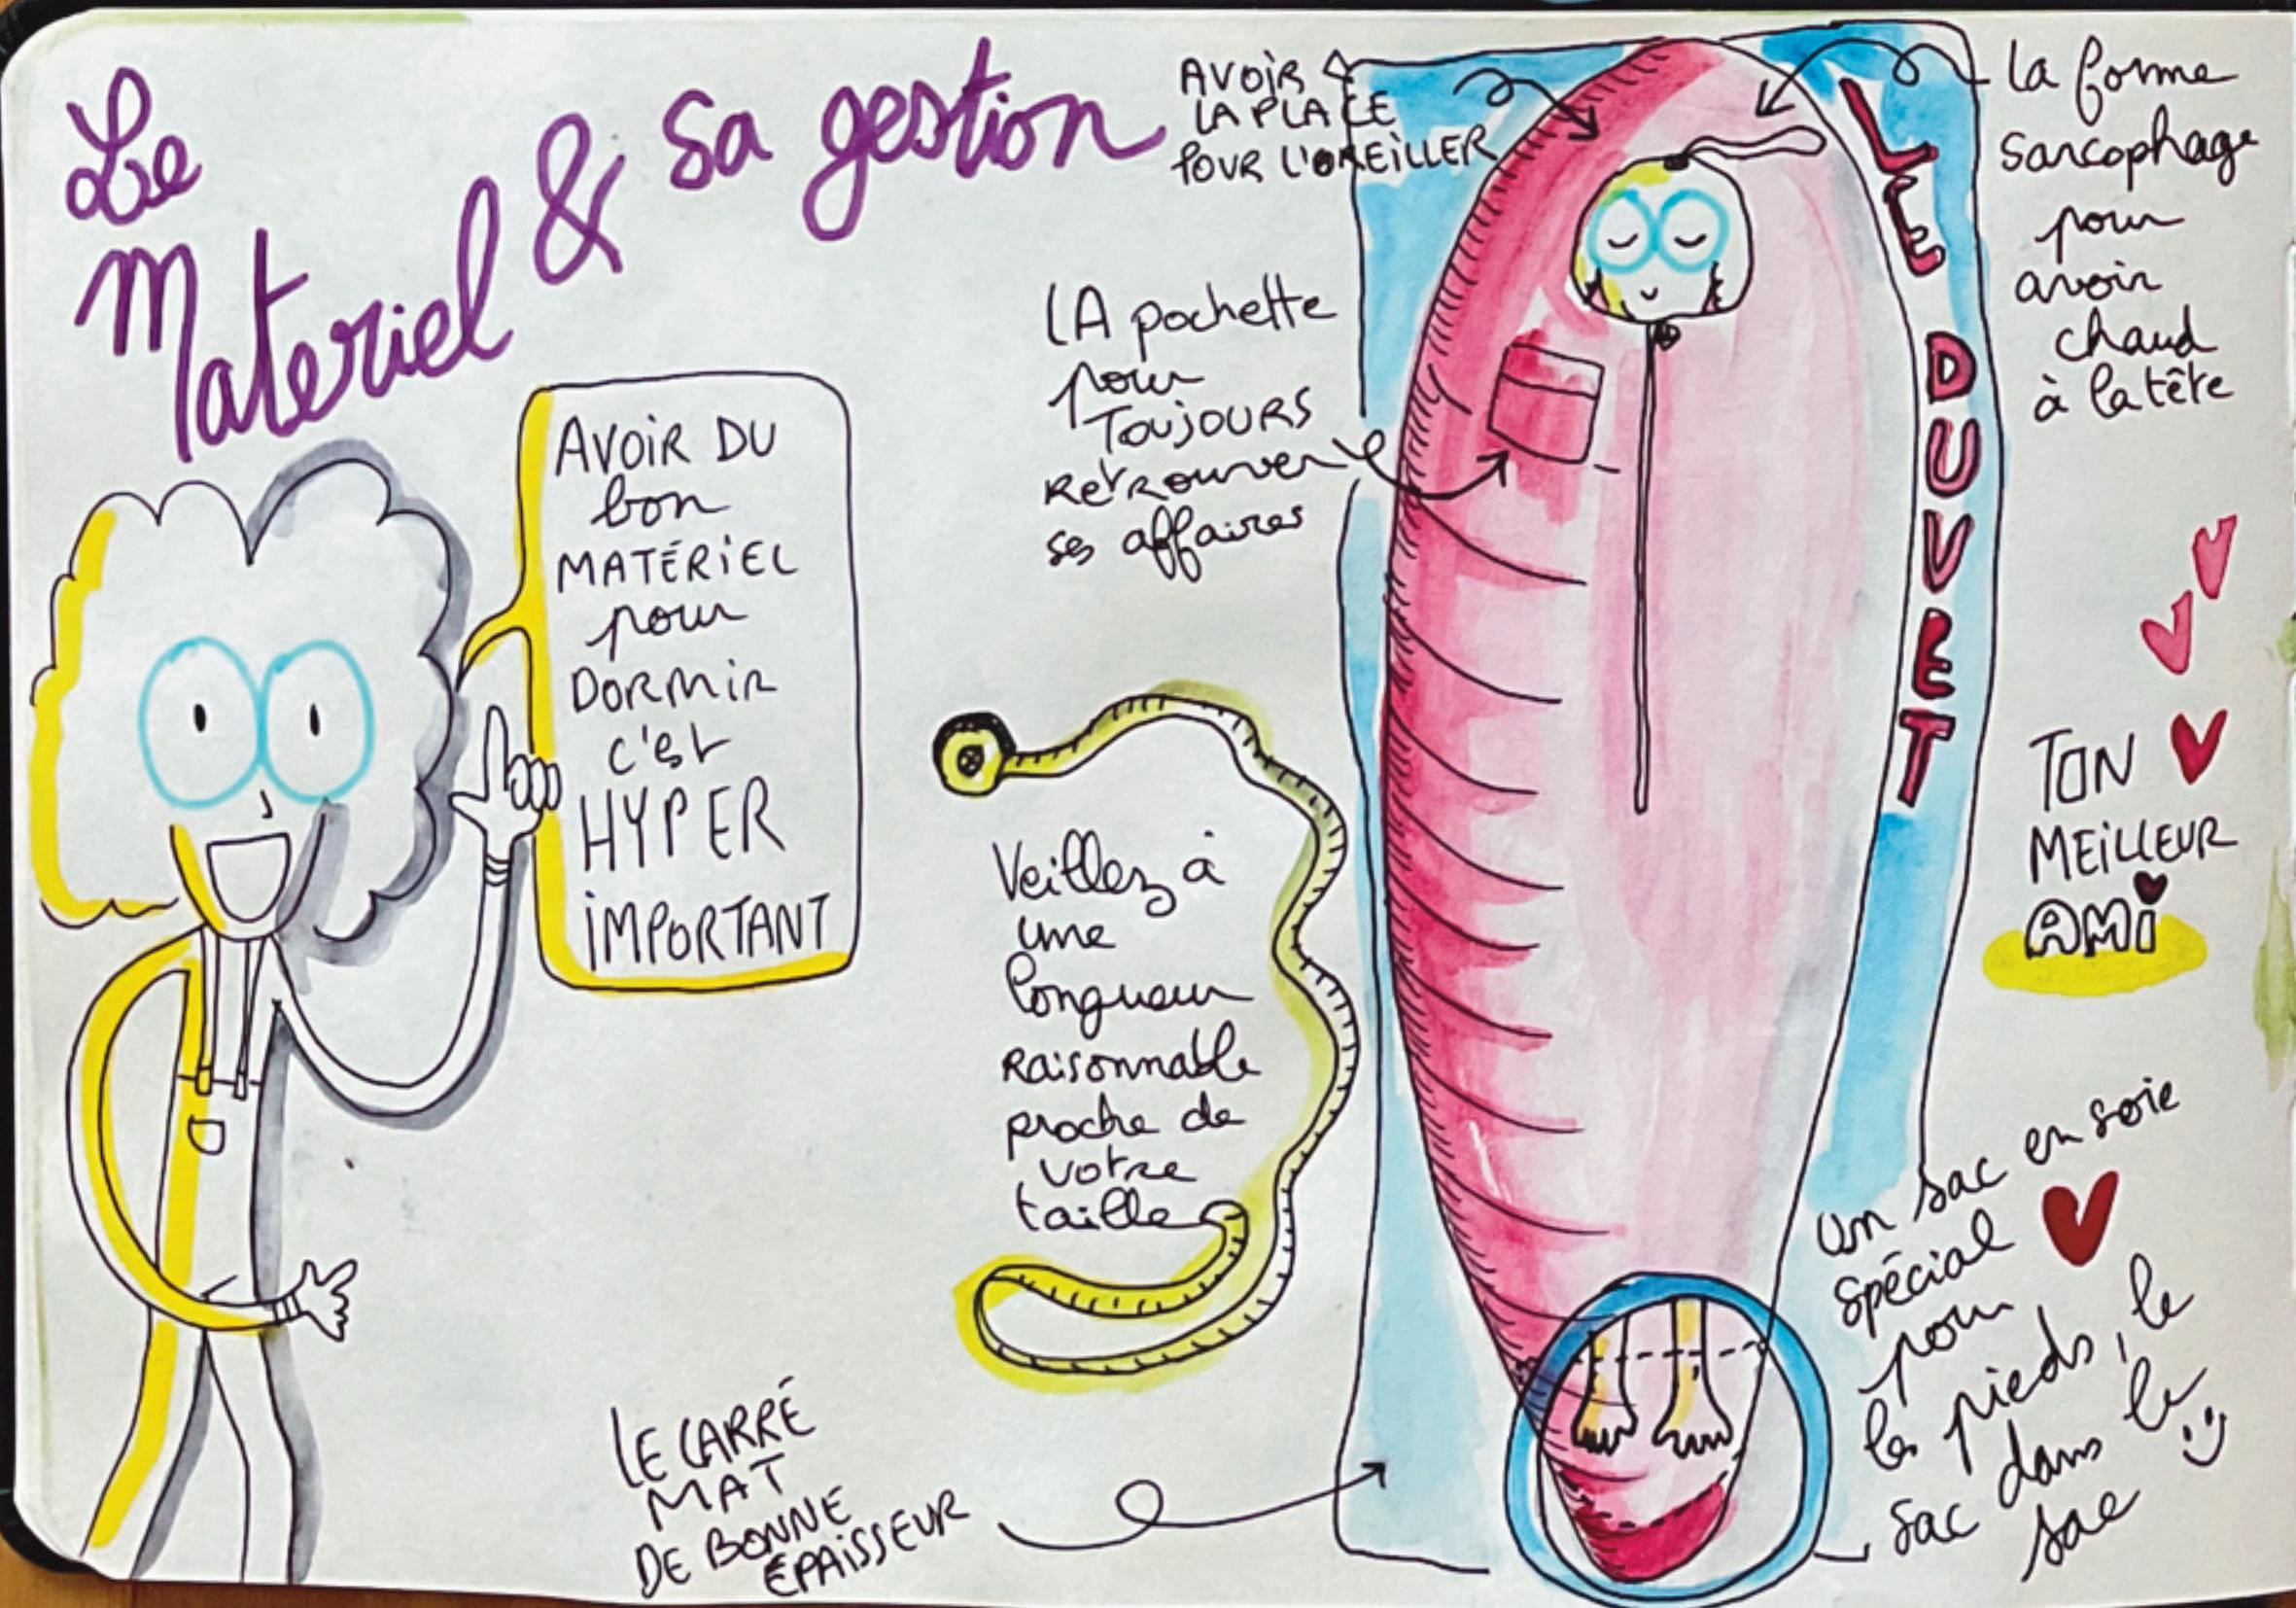 Le
Materiel & sa gestion
AVOIR DU
bon
MATÉRIEL
pour
DORMIR
c'est
HYPER
IMPORTANT
AVOIR
LA PLACE
POUR L'OREILLER
LA pochette
pour
TOUJOURS
RETROUVER
ses affaires
Veillez à
une
longueur
RAISONNABLE
proche de
votre
taille
LE CARRÉ
MAT
DE BONNE
ÉPAISSEUR
LE DUVET
La forme
sarcophage
pour
avoir
chaud
à la tête
TON
MEILLEUR
AMI
un sac en soie
spécial
pour
les pieds, le
sac dans le
sac